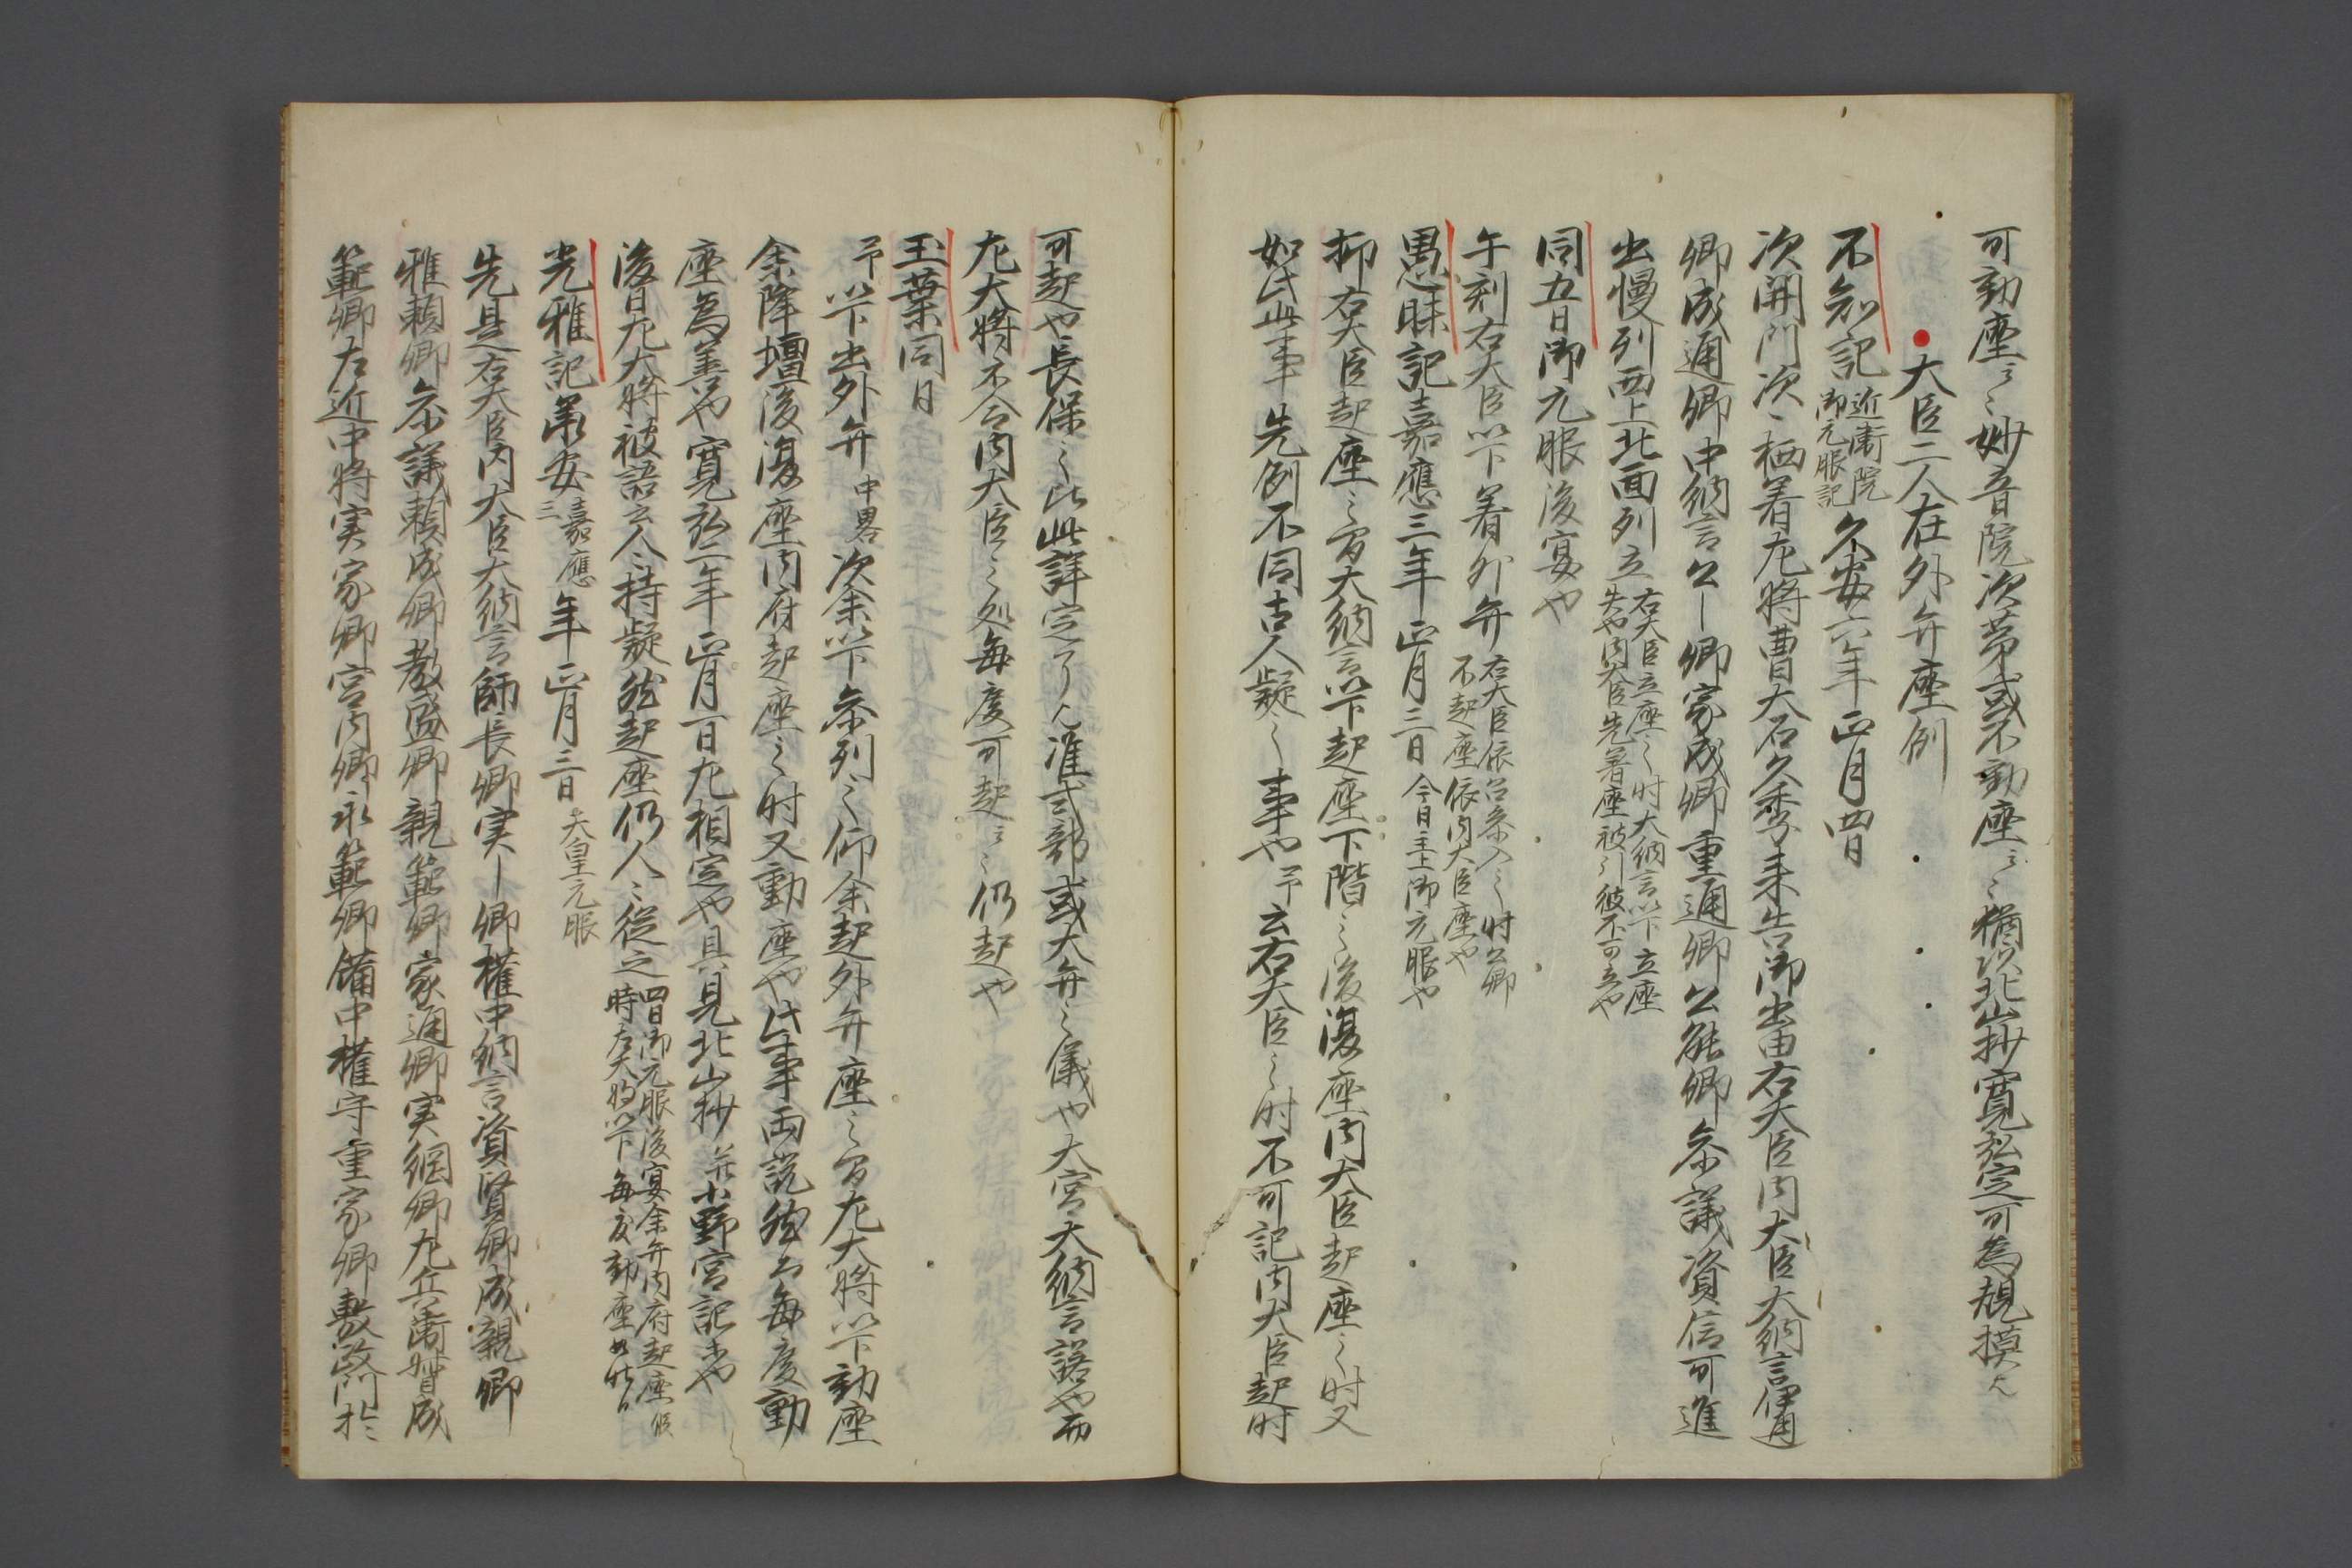 可動座云々妙音院次第或不動座云々猶以北山抄寛弘定可為規摸也
大臣二人在外弁座例
不知記近衛院御元服記久安六年正月四日
次開門次々栖着左将曹大石久季来告御出由右大臣内大臣大納言伊通
卿成通卿中納言公ー卿家成卿重通卿公能卿参議資信可進
出慢列西上北面列立右大臣立座之時大納言以下立座
失也内大臣先着座被引彼不可立也
同五日御元服後宴也
午刻右大臣以下着外弁右大臣依召参入之時公卿
不起座依内大臣座也
愚昧記嘉應三年正月三日今日主上御元服也
抑右大臣起座之間大納言以下起座下階之後復座内大臣起座之時又
如此此事先例不同古人疑之事也予云右大臣之時不可記内大臣起時
可起也長保之比此詳定了也准式部或大弁之儀也大宮大納言諾也而
左大将不合内大臣之処毎度可起云々仍起也
玉葉同日
予以下出外弁中畧次余以下参列之仰余起外弁座之間左大将以下動座
余降壇後復座内府起座之時又動座也此事両説然而毎度動
座為善也寛弘二年正月一日左相定也具見北山抄并小野宮記等也
後日左大将被語云人々持疑然起座仍人々従之四日御元服後宴余并内府起座候
時左大将以下毎度動座如此日
光雅記承安嘉應三年正月三日天皇元服
先是右大臣内大臣大納言師長卿実ー卿権中納言資賢卿成親卿
雅頼卿参議頼成卿教盛卿親範卿家通卿実綱卿左兵衛督成
範卿右近中将実家卿宮内卿永範卿備中権守重家卿敷政門於